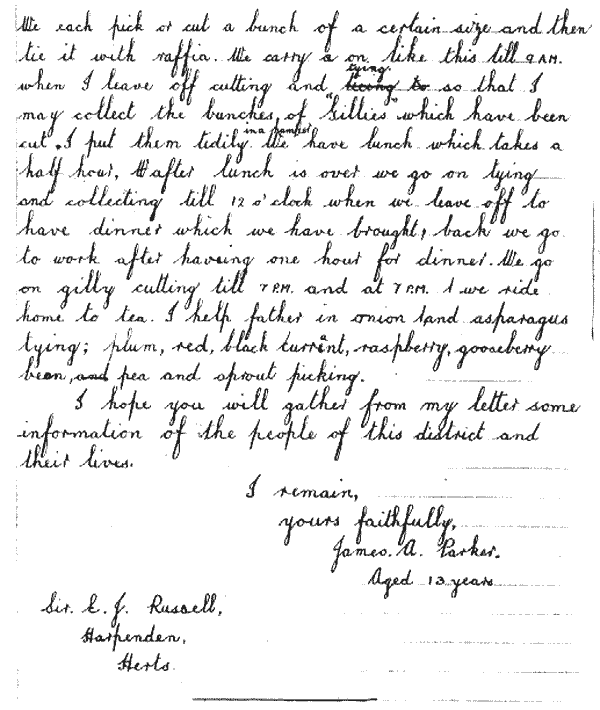 We each pick or cut a bunch of a certain size and then
tie it with raffia. We carry a on like this till 9 A.M.
when I leave off cutting and tying. so that I
may collect the bunches, of "Gillies" which have been
cut. I put them tidily in a hamper We have lunch which takes a
half hour, After lunch is over we go on tying
and collecting till 12 o'clock when we leave off to
have dinner which we have brought, back we go
to work after haveing one hour for dinner. We go
on gilly cutting till 7 P.M. and at 7 P.M. we ride
home to tea. I help father in onion and asparagus
tying; plum, red, black currant, raspberry, gooseberry
bean, and pea and sprout picking.
I hope you will gather from my letter some
information of the people of this district and
their lives.
I remain,
yours faithfully,
James. A. Parker.
Aged 13 years
Sir. E. J. Russell,
Harpenden,
Herts.